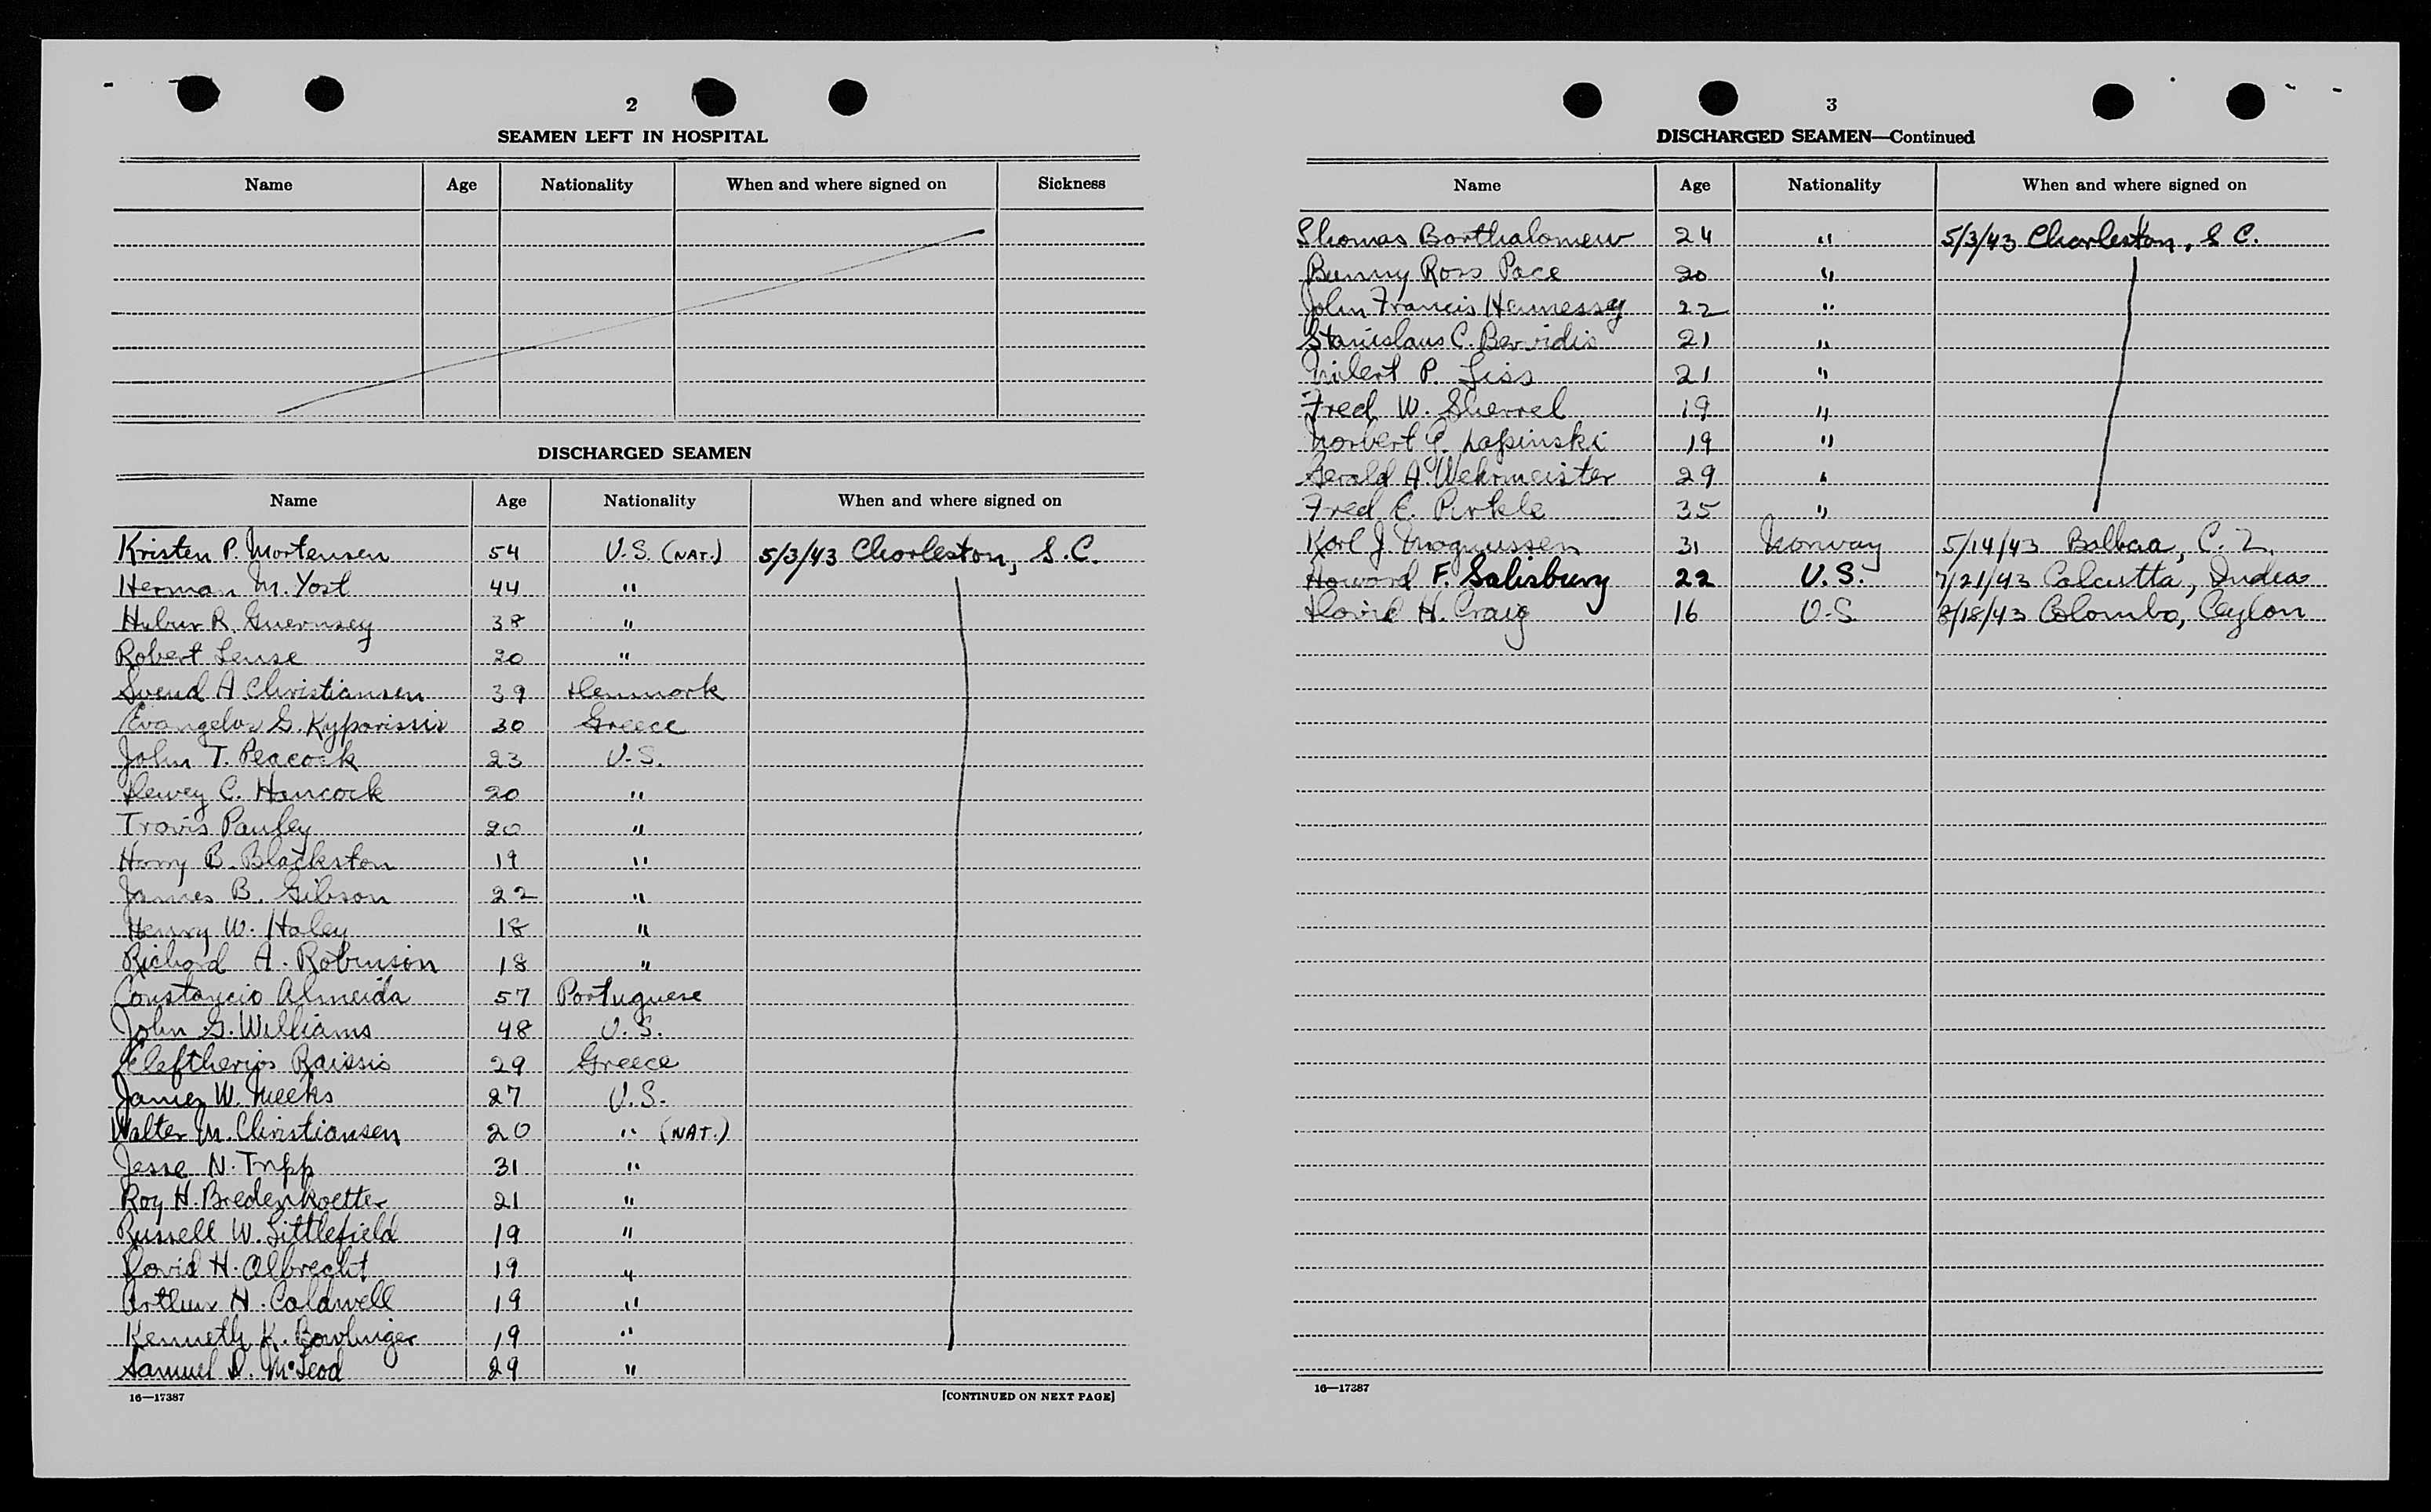 2
SEAMEN LEFT IN HOSPITAL
Name Age Nationality When and where signed on Sickness
DISCHARGED SEAMEN
Name Age Nationality When and where signed on
Kristen P. Mortensen 54 U.S. (NAT.) 5/3/43 Charleston, S.C.
Herman M. Yost 44 "
R. Guernsey 38 "
Robert 20 "
Svend A Christiansen 39 Denmark
Evangelos G. Kyparissis 30 Greece
John T. Peacock 23 U.S.
Dewey C. Hancock 20 "
Travis Pauley 20 "
Harry B. Blackston 19 "
James B. Gibson 22 "
Henry W. Haley 18 "
Richard A. Robinson 18 "
Constancio Almeida 57 Portuguese
John G. Williams 48 U.S.
Eleftherios Raissis 29 Greece
James W. Meeks 27 U.S.
Walter M. Christiansen 20 " (NAT.)
Jesse N. Tripp 31 "
Roy H. Bredenkoetter 21 "
Russell W. Littlefield 19 "
David H. Albrecht 19 "
Arthur H. Caldwell 19 "
Kenneth K. 19 "
Samuel D. McLeod 29 "
16—17387 [CONTINUED ON NEXT PAGE]
3
DISCHARGED SEAMEN—Continued
Name Age Nationality When and where signed on
Thomas Barthalomew 24 " 5/3/43 Charleston, S.C.
Bunny Ross Pace 20 "
John Francis Hennessy 22 "
Stanislaus C. 21 "
P. Liss 21 "
Fred W. Sherrel 19 "
Norbert Lapinski 19 "
Gerald A. Wehrmeister 29 "
Fred E. Pirkle 35 "
Karl J. Magnussen 31 Norway 5/14/43 Balboa, C.Z.
Howard F. Salisbury 22 U.S. 7/21/43 Calcutta, India
David H. Craig 16 U.S. 8/18/43 Colombo, Ceylon
16—17387